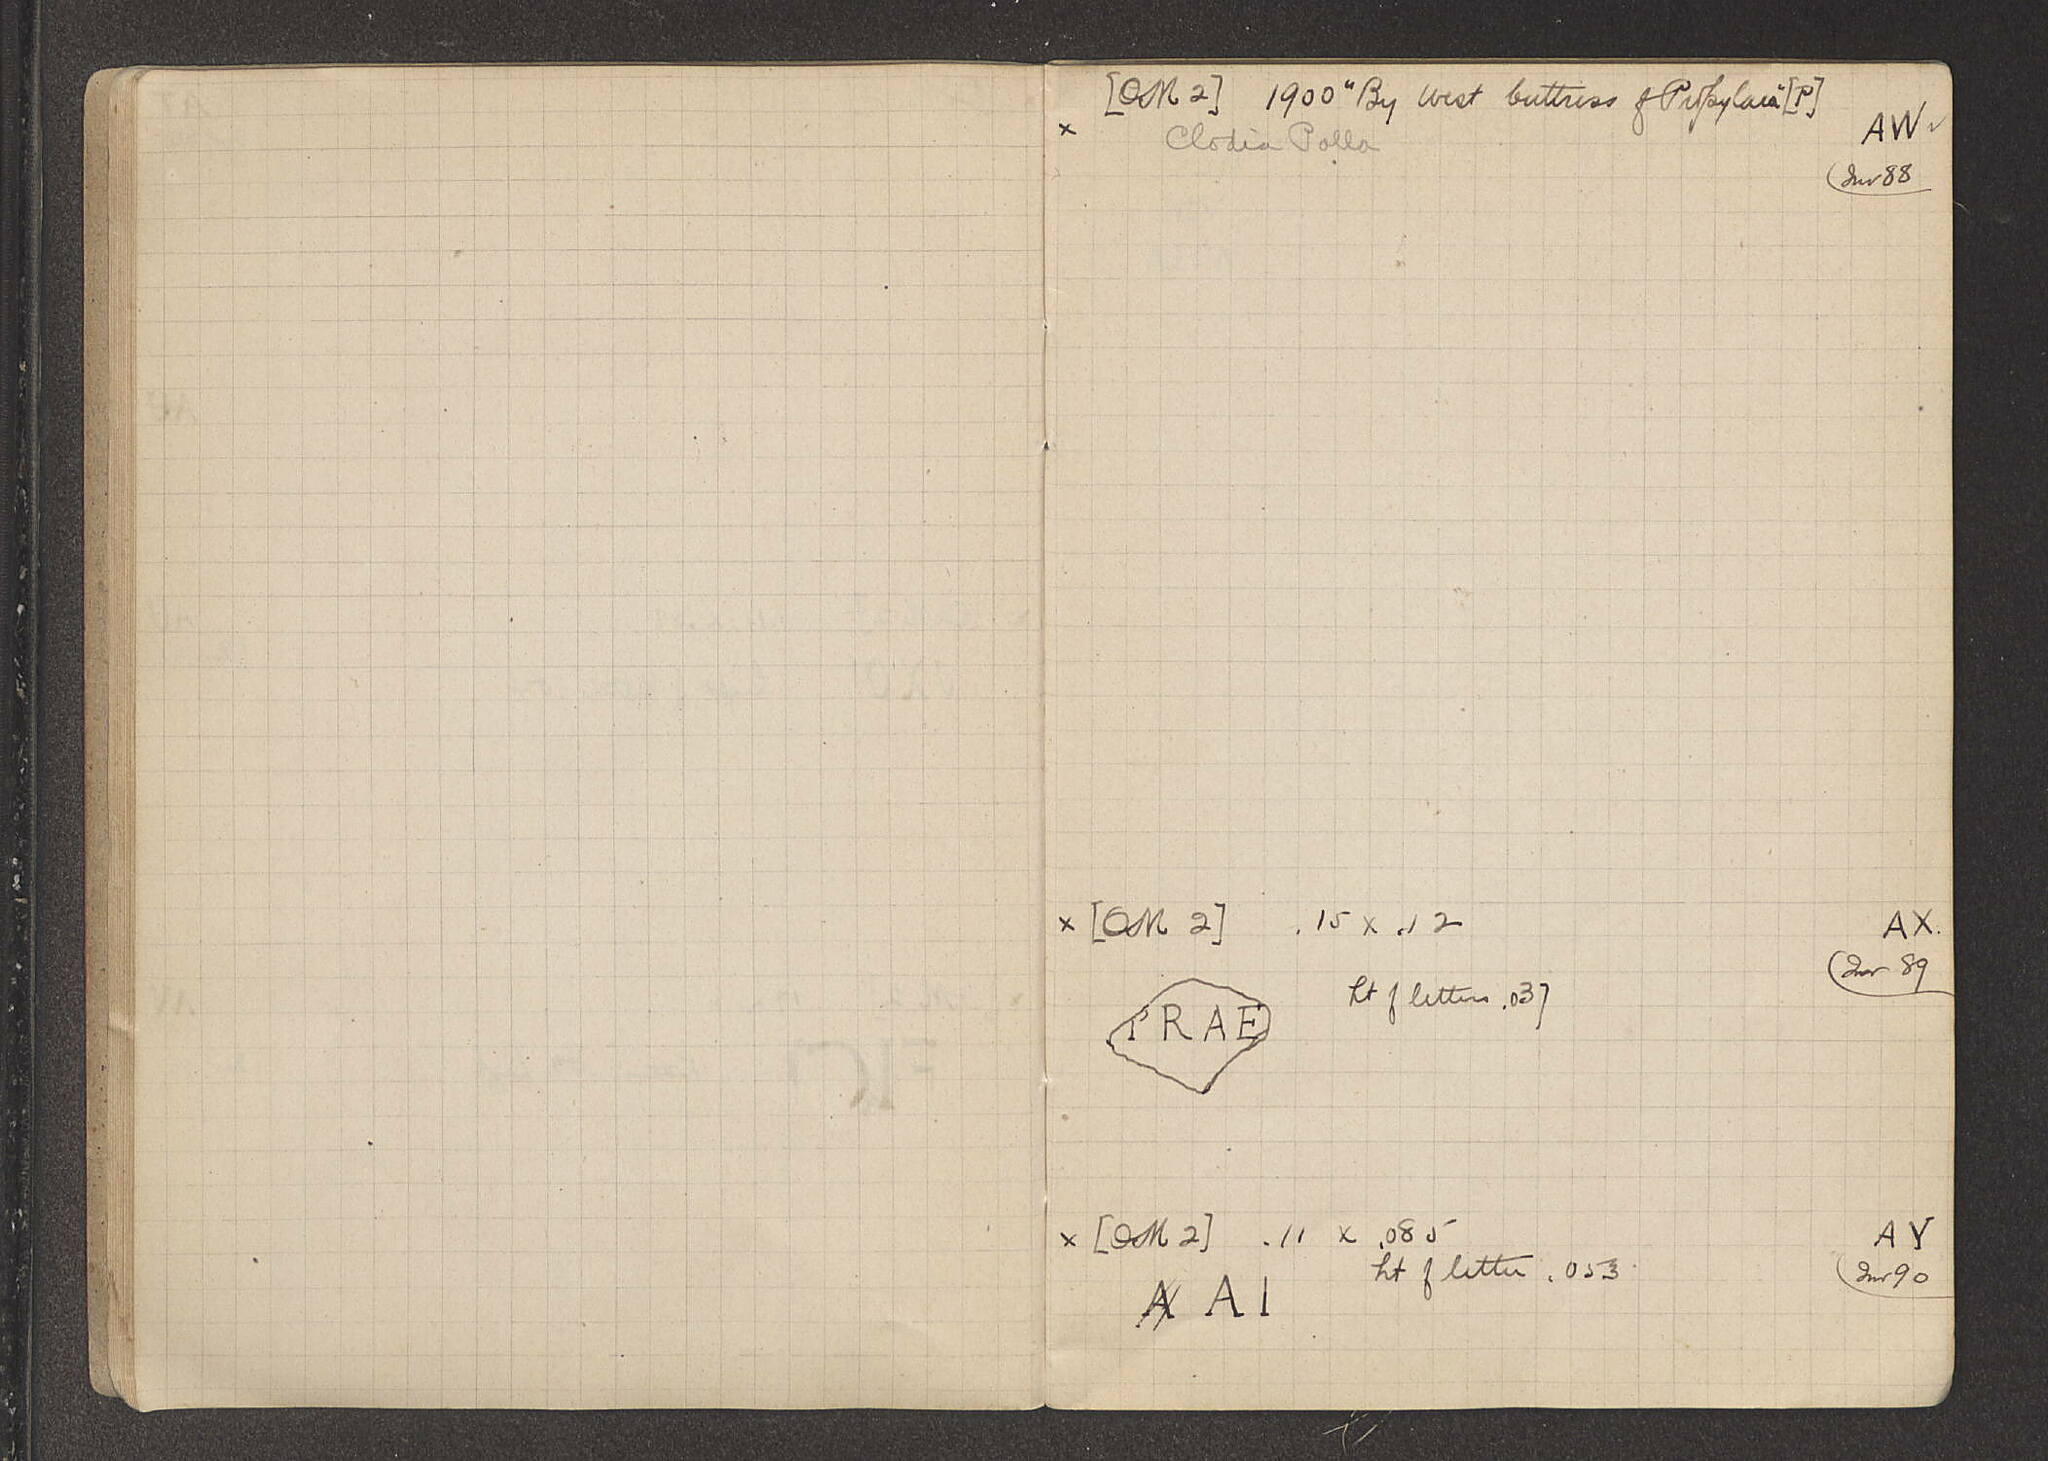 [OM 2] 1900 "By West buttress of Propylaea" [P]
x AW ✓
Clodia Polla
Inv 88
x [OM 2] .15 x .12 AX.
Inv 89
ht of letters .037
PRAE
x [OM 2] .11 x .085 AY
ht of letter .053 Inv 90
A AI